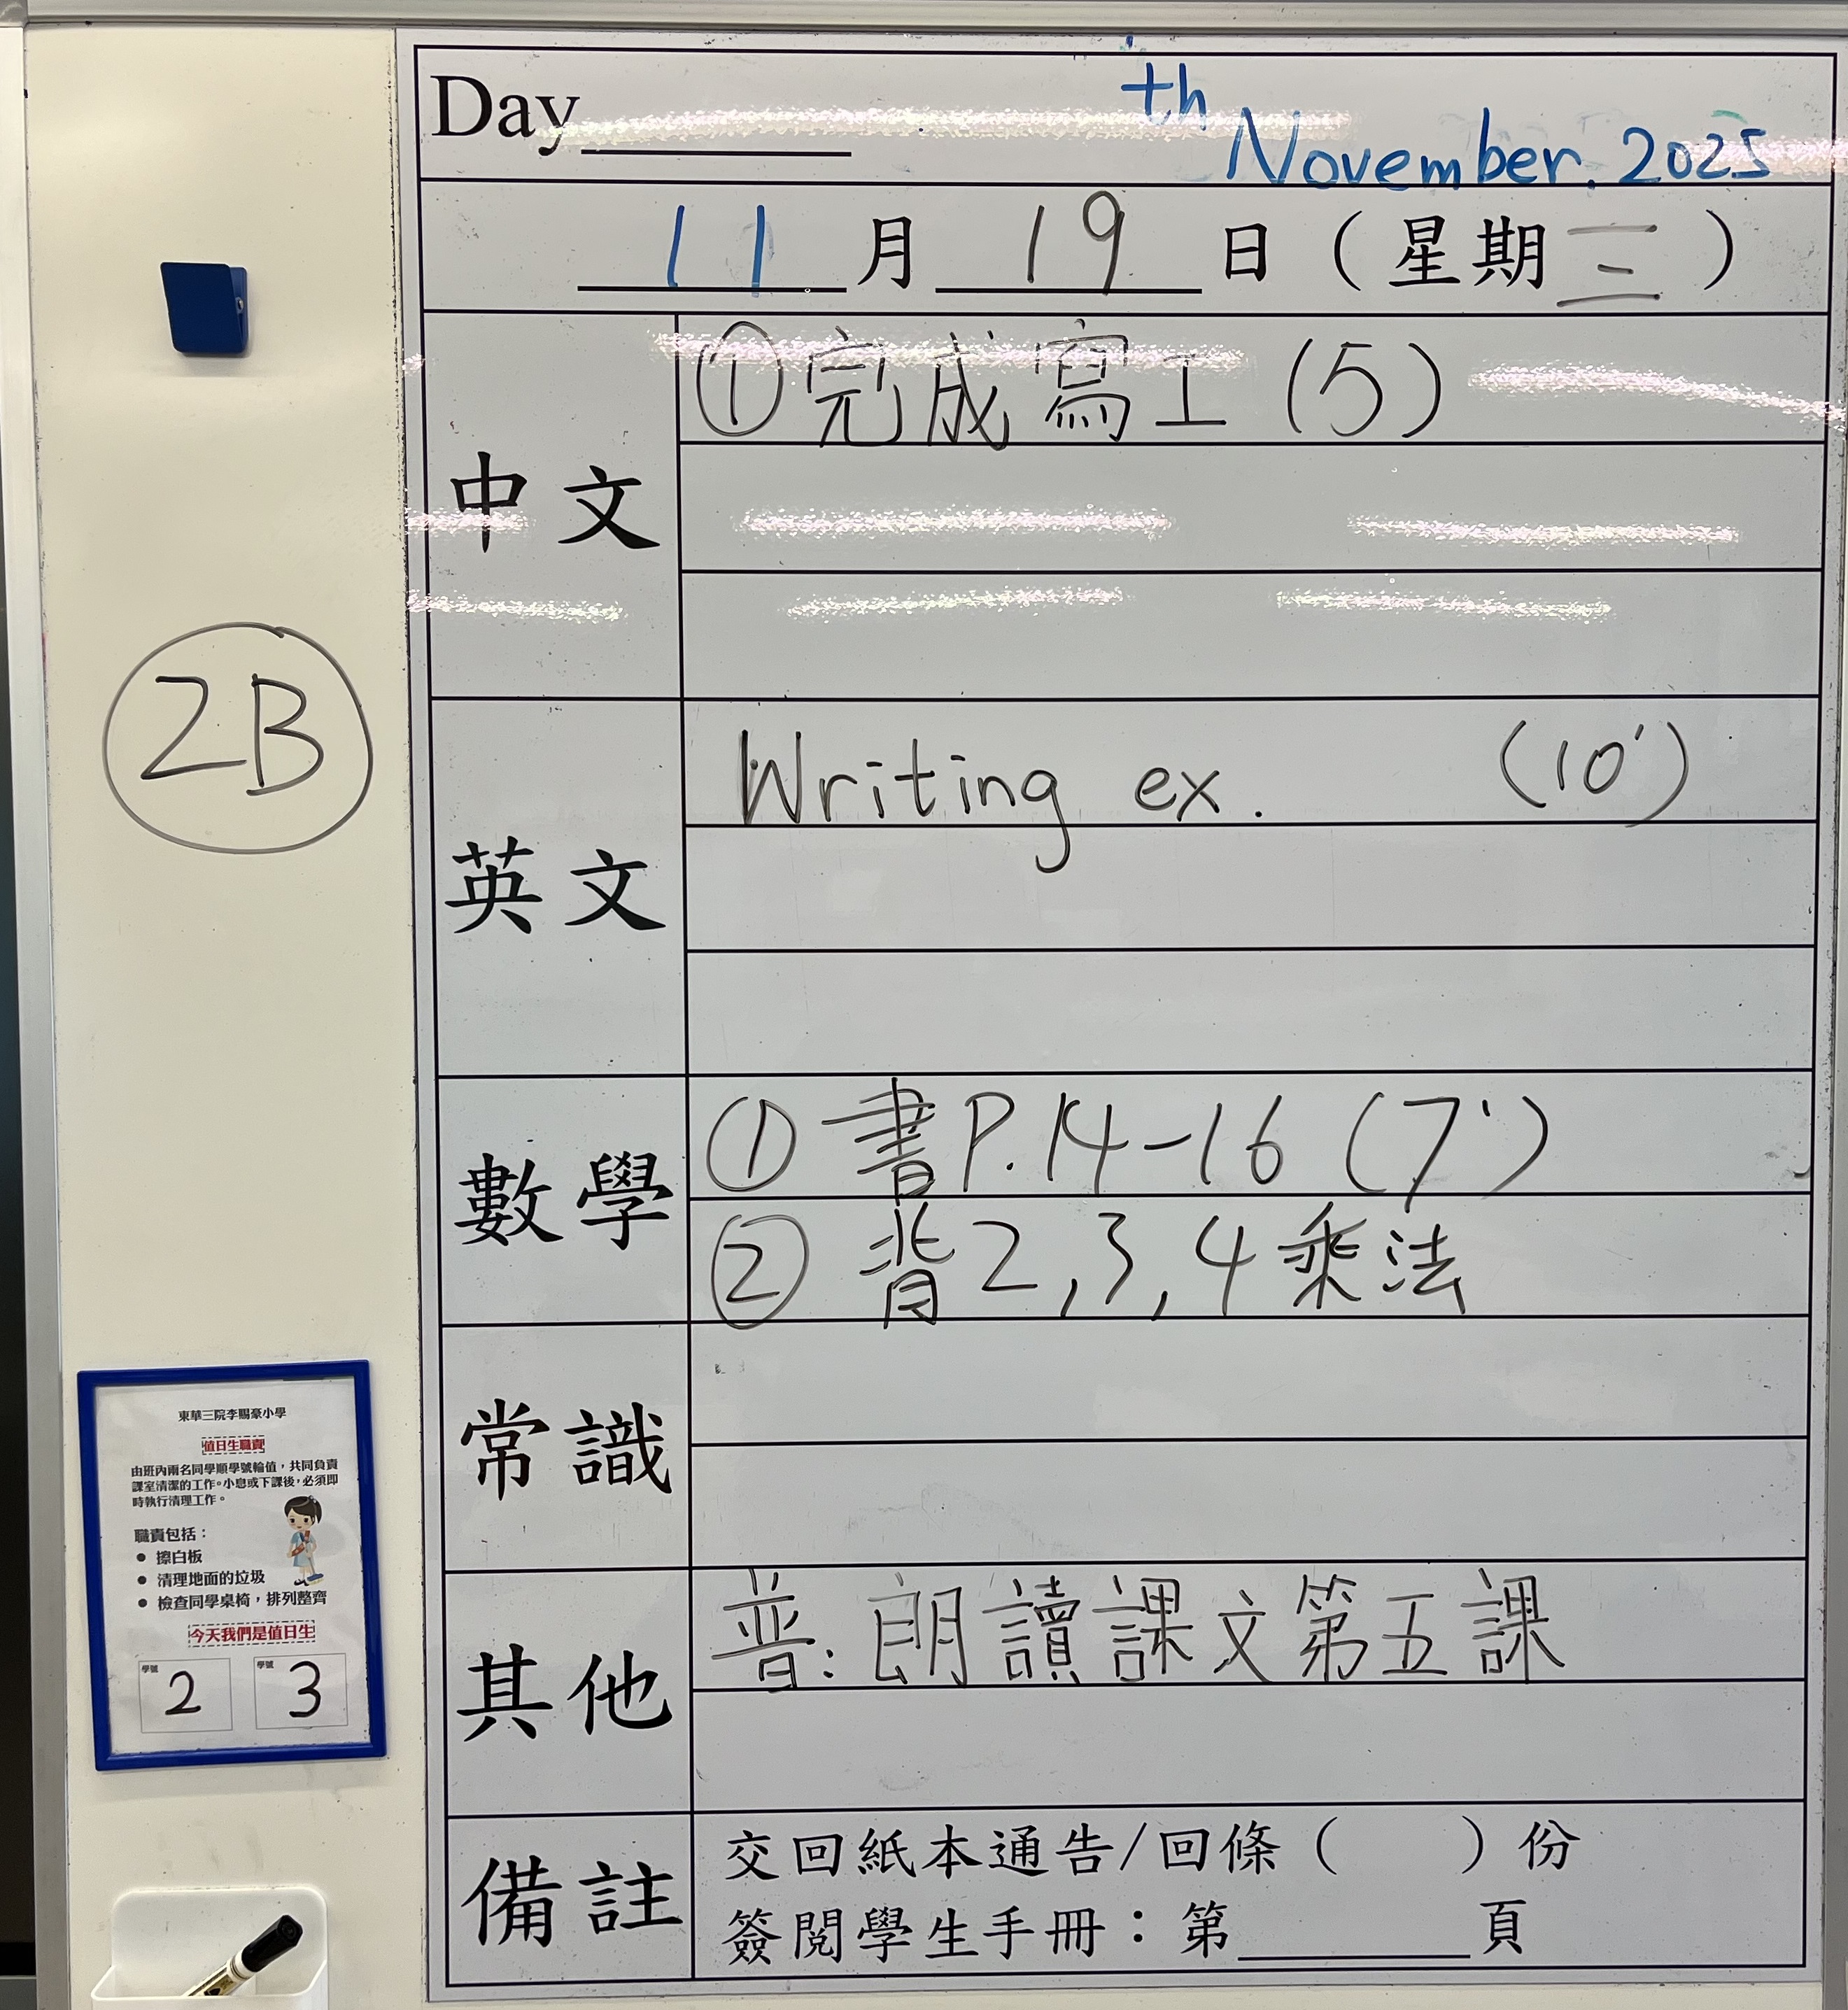 Day
th
November. 2025
11 月 19 日 ( 星期 三 )
中文
①完成寫工 (5)
2B
英文
Writing ex. (10')
數學
① 書P.14-16 (7')
② 背2,3,4乘法
常識
其他
普: 朗讀課文第五課
備註
交回紙本通告/回條 ( ) 份
簽閱學生手冊：第 頁
東華三院李賜豪小學
值日生職責
由班內兩名同學順學號輪值，共同負責
課室清潔的工作。小息或下課後，必須即
時執行清理工作。
職責包括：
● 擦白板
● 清理地面的垃圾
● 檢查同學桌椅，排列整齊
今天我們是值日生
學號 2 學號 3